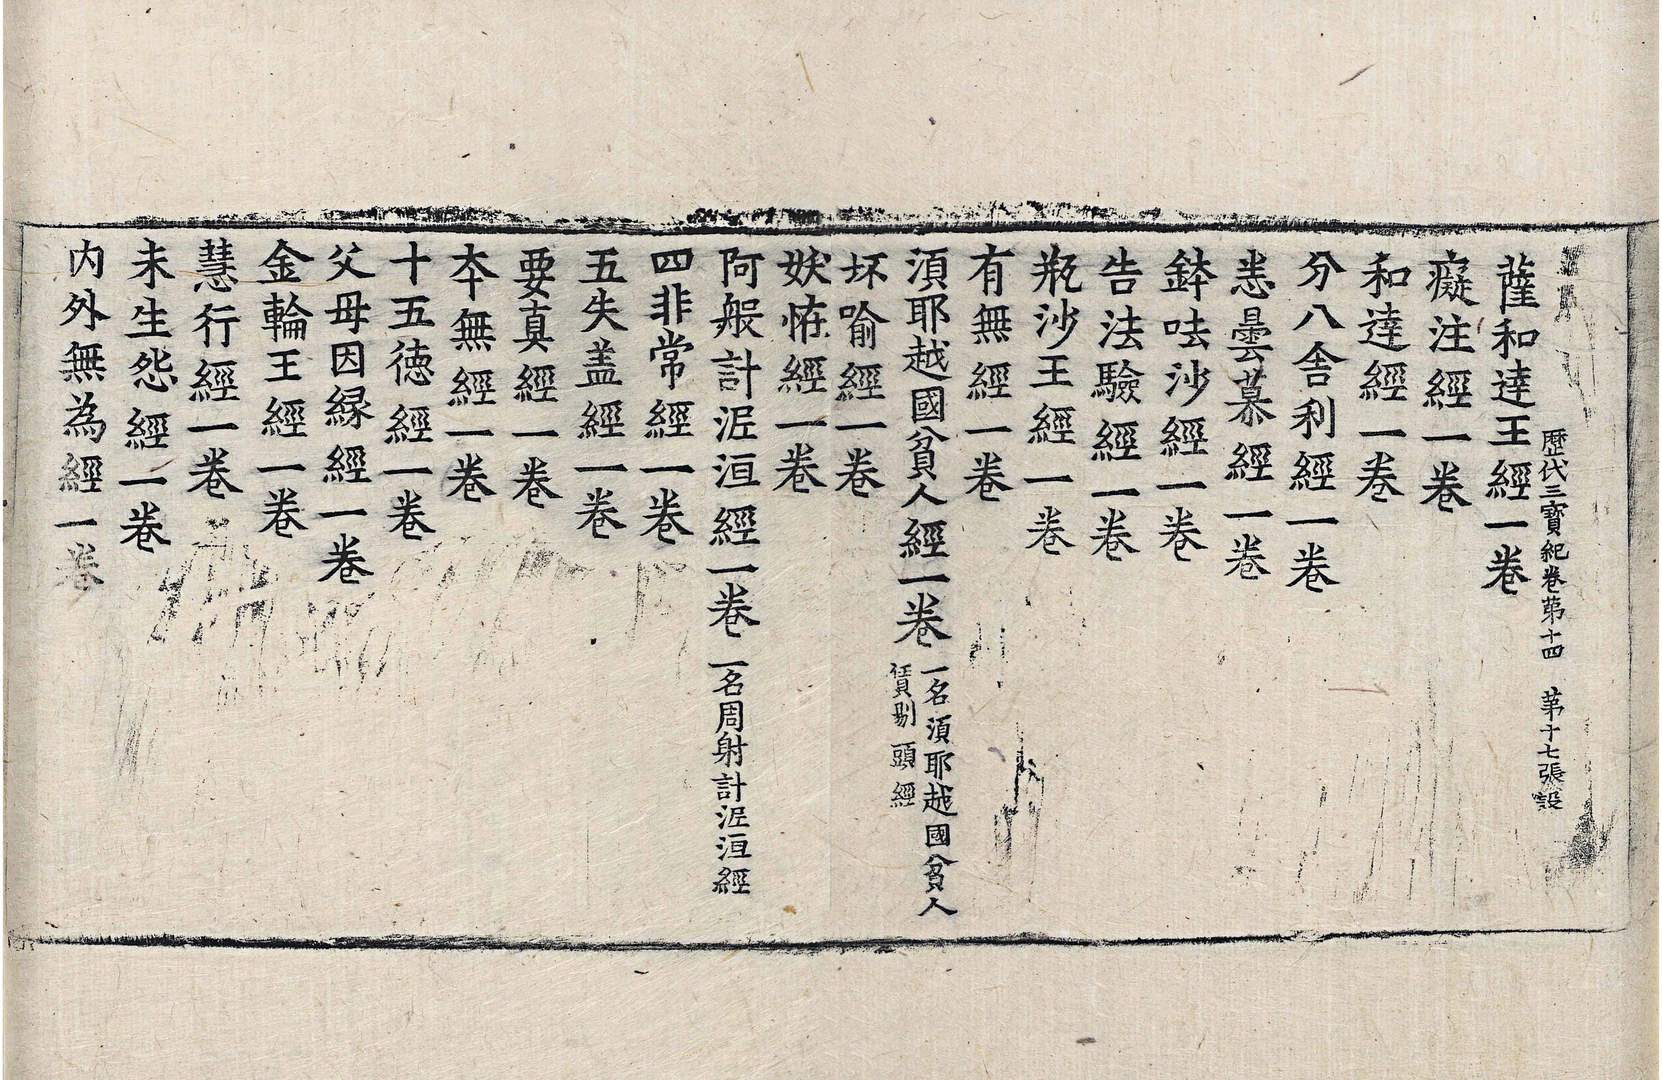 歷代三寶紀卷第十四 第十七張 設
薩和達王經一卷
癡注經一卷
和達經一卷
分八舍利經一卷
恚曇慕經一卷
鉢呿沙經一卷
告法驗經一卷
甁沙王經一卷
有無經一卷
湏耶越國貧人經一卷 一名湏耶越國貧人
賃剔頭經
坏喻經一卷
妖恠經一卷
阿般計泥洹經一卷 一名周射計泥洹經
四非常經一卷
五失盖經一卷
要真經一卷
本無經一卷
十五德經一卷
父母因緣經一卷
金輪王經一卷
慧行經一卷
未生怨經一卷
内外無為經一卷